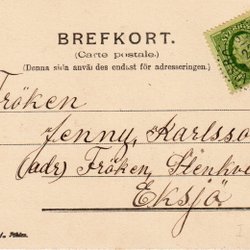 BREFKORT.
(Carte postale.)
(Denna sida användes endast för adresseringen.)
Fröken
Jenny Karlsso
(adr) Fröken, Stenkvi
Eksjö